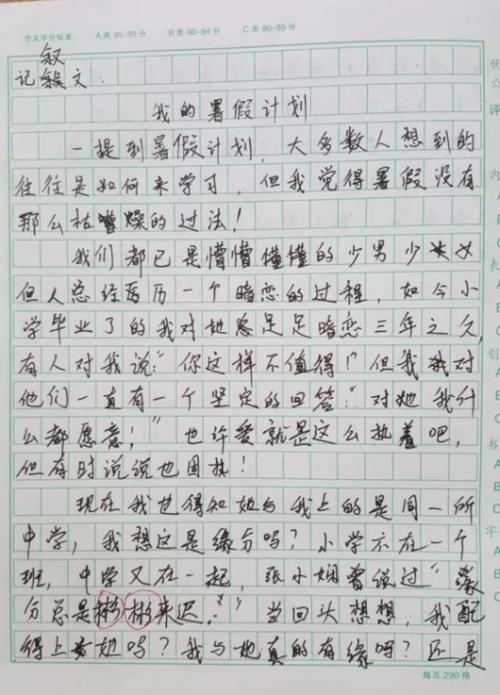 作文评分标准： A类 95-99分 B类 90-94分 C类 80-89分
叙
记文：
我的暑假计划
一提到暑假计划，大多数人想到的
往往是如何来学习，但我觉得暑假没有
那么枯燥的过法！
我们都已是懵懵懂懂的少男少女
但人总经历一个暗恋的过程，如今小
学毕业了的我对她足足暗恋三年之久，
有人对我说："你这样不值得！"但我对
他们一直有一个坚定的回答："对她我什
么都愿意！"也许爱就是这么执着吧，
但有时说说也困扰！
现在我也得知她与我上的是同一所
中学，我想这是缘分吗？小学不在一个
班，中学又在一起，张小娴曾说过"缘
分总是彬彬来迟。"当回头想想，我配
得上她吗？我与她真的有缘吗？还是
每页290格
优
☆
评
内
表
创
A
B
C
字